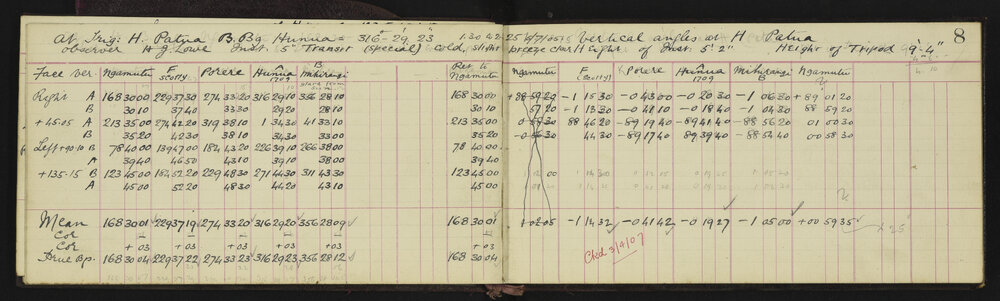 At Trig: H. Patua B. Bg Hunua = 316° 29' 23" 1.30 Vertical angles at H Patua 8
observer H J. Lowe Inst. 5" Transit (special) Cold, slight breeze clear Height of Inst. 5' 2" Height of Tripod 9'-4"
Face Ver. Ngamutu F (Scotty) Porere Hunua 1709 B Mihirangi Ret to Ngamutu Ngamutu F (Scotty) Porere Hunua 1709 Mihirangi B Ngamutu
Right A 168 30 00 229 37 30 274 33 20 316 29 10 356 28 10 168 30 00 +88 59 20 -1 15 30 -0 43 00 -0 20 30 -1 06 20 +89 01 20
B 30 10 37 40 33 30 29 20 28 10 30 10 57 20 -1 13 30 -0 41 10 -0 18 40 -1 04 30 88 59 20
+45.05 A 213 35 00 274 42 20 319 38 10 1 34 30 41 33 10 213 35 00 0 58 30 88 46 20 -89 19 40 -89 41 40 -88 56 20 01 00 30
B 35 20 42 30 38 10 34 30 33 00 35 20 -0 56 30 44 30 -89 17 40 89 39 40 -88 54 40 00 58 30
Left +90.10 B 78 40 00 139 47 00 184 43 20 226 39 10 266 38 00 78 40 00
A 39 40 46 50 43 10 39 10 38 00 39 40
+135.15 B 123 45 00 184 52 20 229 48 30 271 44 30 311 43 30 123 45 00
A 45 00 52 20 48 30 44 20 43 10 45 00
Mean 168 30 01 229 37 19 274 33 20 316 29 20 356 28 09 168 30 01 1 02 05 -1 14 32 -0 41 42 -0 19 27 -1 05 00 +00 59 35 × 25
Cor
Cor +03 +03 +03 +03 +03 +03
True Bg. 168 30 04 229 37 22 274 33 23 316 29 23 356 28 12 168 30 04
Ckd 3/9/07